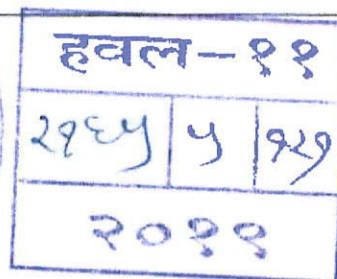 हवल-११
२१६५ ५ १२१
२०१९